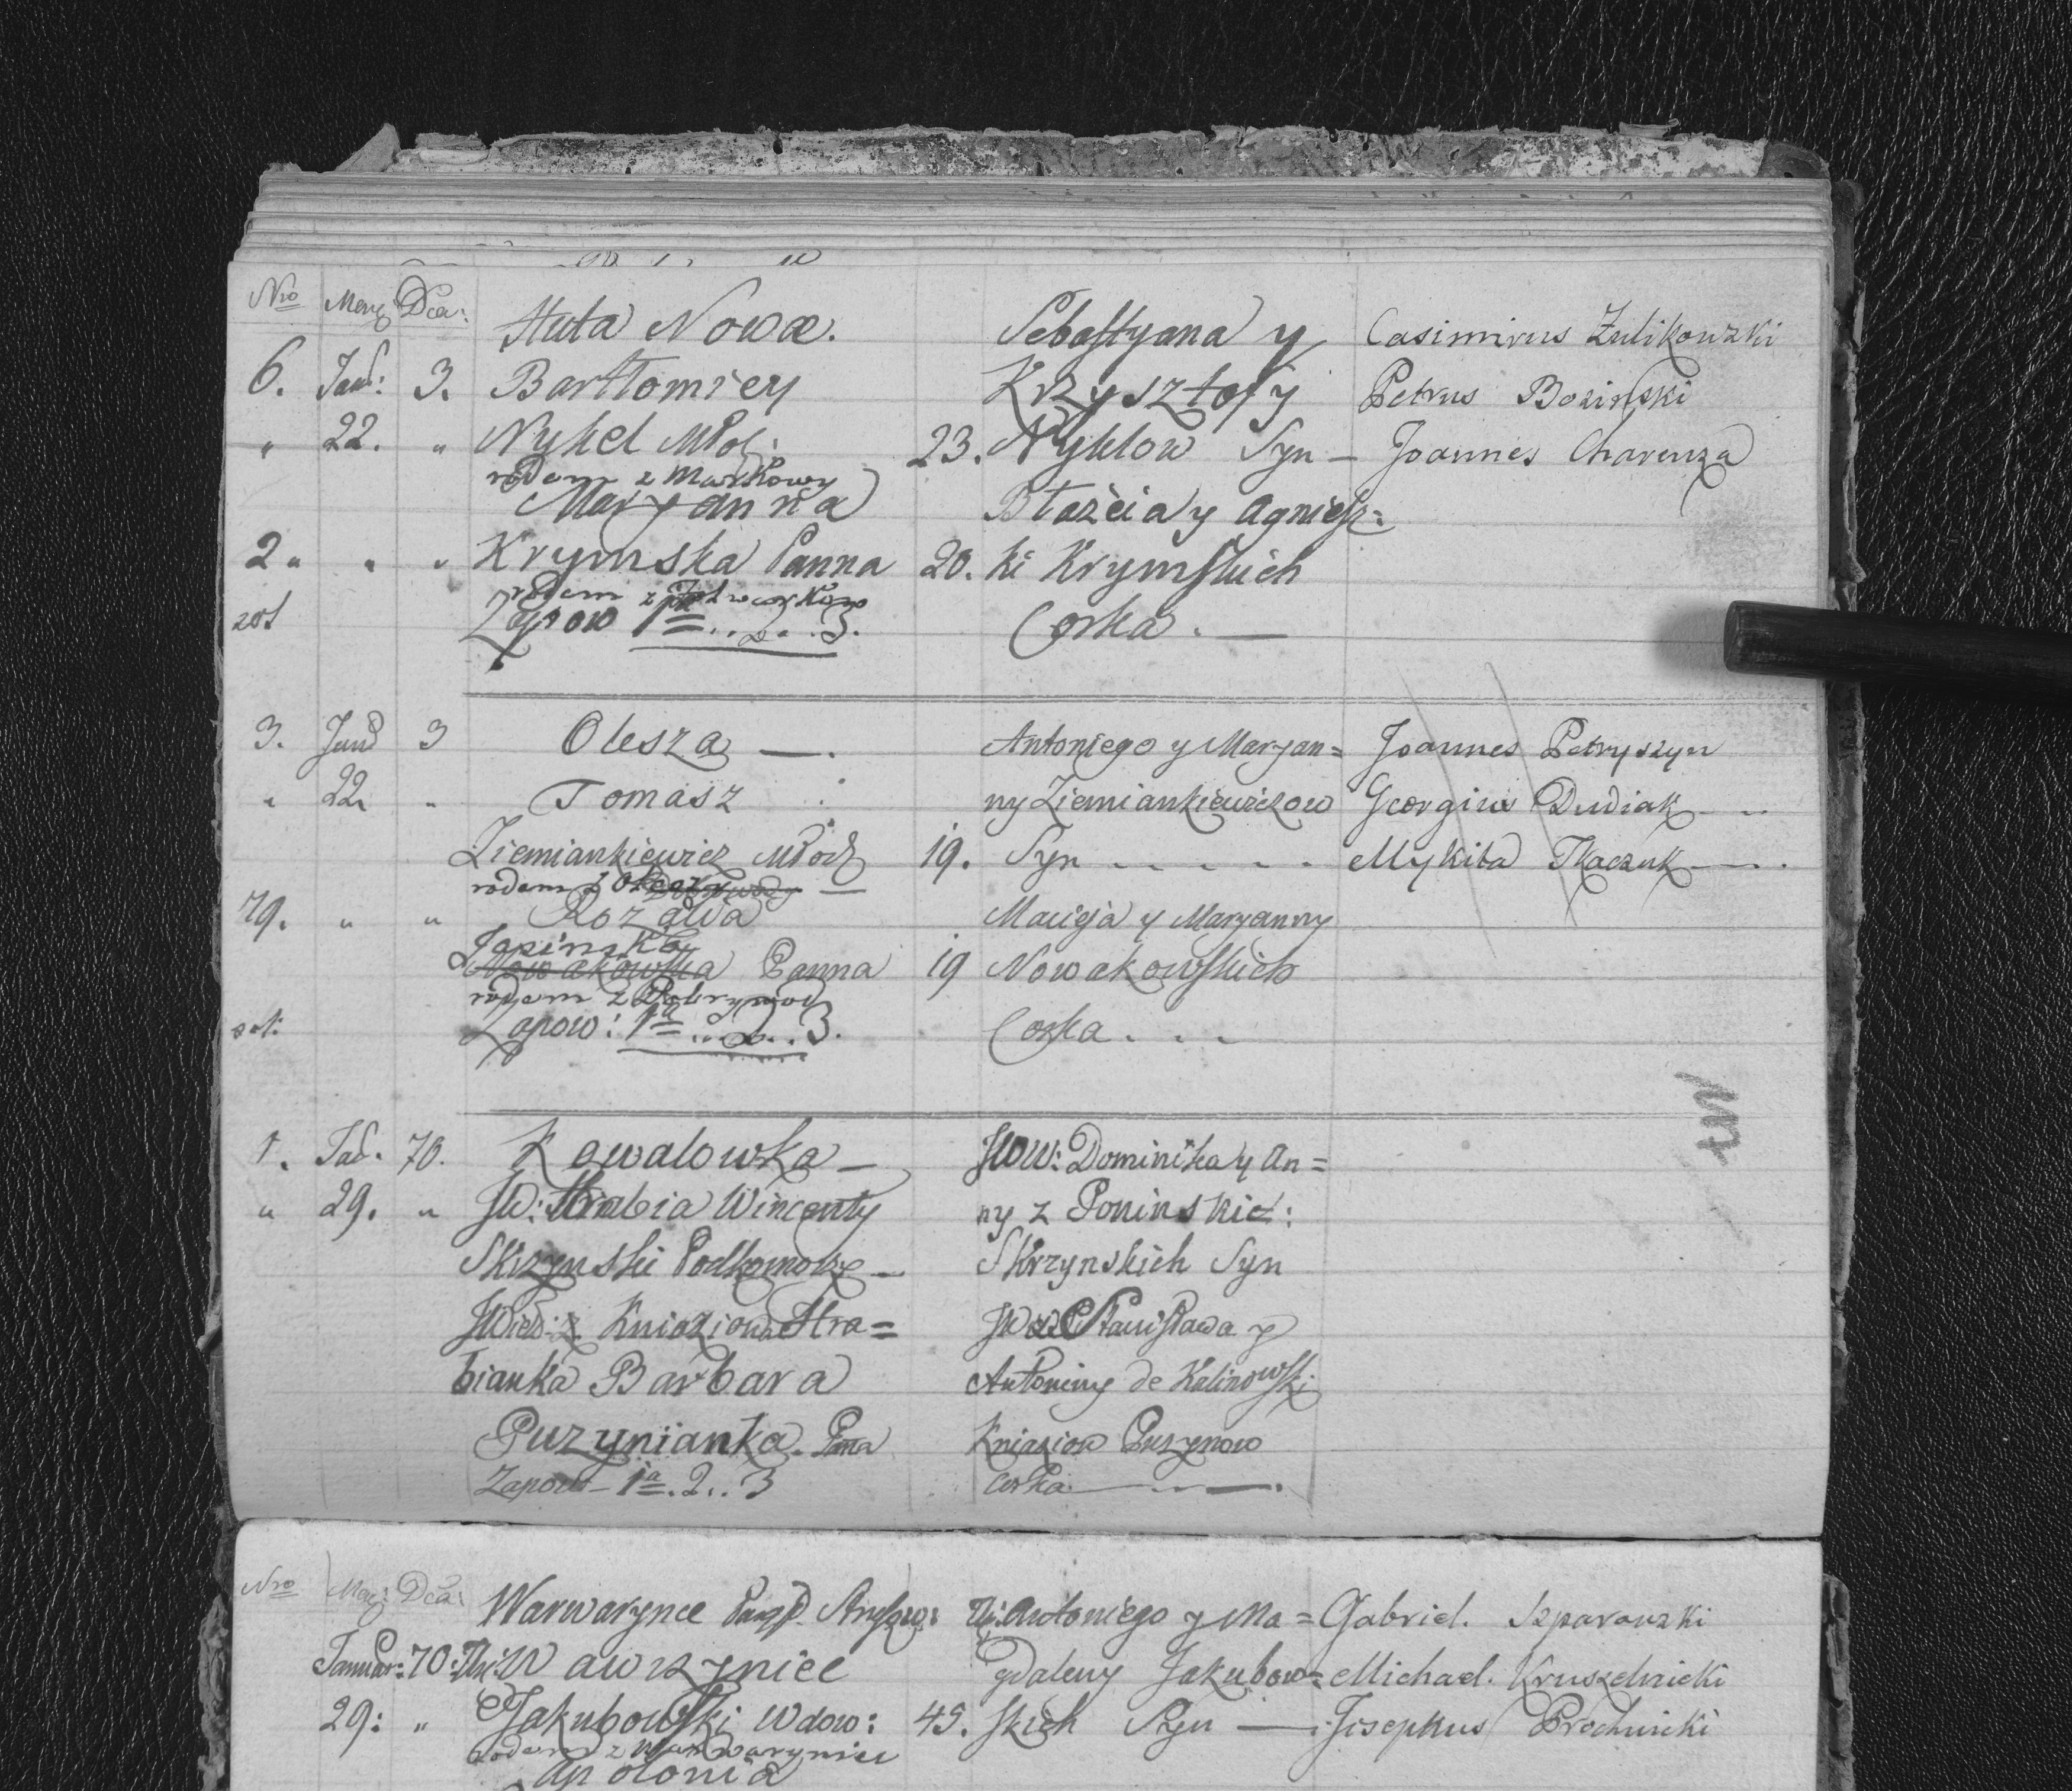 Nro Meny: Dca:
Huta Nowa. Sebastyana y Casimirus Zulikowzki
6. Jan: 3. Bartłomiey Krzysztofy Petrus Bozinski
" 22. " Nykel Młoj: 23. Nyklow Syn — Joannes Charenza
rodem z Markowy
Maryanna Błażeia y Agniesz=
2 " " " Krymska Panna 20. ki Krymskich
rodem z
Zapow 1ma .. 2 .. 3. Corka. —
3. Janu 3 Olesza —. Antoniego y Maryan= Joannes Petryszyn
" 22 " Tomasz ny Ziemiankiewiczow Georgius Dudiak
Ziemiankiewicz Młodz 19. Syn - - - - - Mykita Tkaczuk —.
rodem z
79. " " Rozalia Macieja y Maryanny
Jasinska
Nowakowska Panna 19 Nowakowskich
rodem z Dobrywod
Zapow: 1ma .. 2 .. 3. Corka . . .
1. Jan. 70. Kowalowka — JWW: Dominika y An=
" 29. " JW: Hrabia Wincenty ny z Poninskich:
Skrzynski Podkomorzy — Skrzynskich Syn
z Kniaziow Hra= Stanisława y
bianka Barbara Antoniny de Kalinowski
Puzynianka. Pnna Kniaziow Puzynow
Zapow — 1ma. 2.. 3 corka —.
Nro Meny: Dca: Warwarynce Antoniego y Ma= Gabriel. Szparowzki
Januar: 70: Wawrzyniec gdaleny Jakubow= Michael. Kruszelnicki
29: " Jakubowski Wdow: 45. skich Syn — Josephus Prochnicki
rodem z Warwaryniec
Apolonia